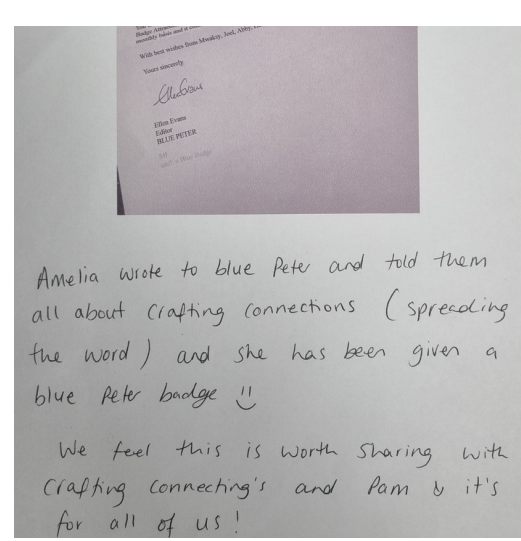 Badge
monthly
With best wishes from Mwaksy, Joel, Abby,
Yours sincerely
Ellen Evans
Editor
BLUE PETER
a Blue Badge
Amelia wrote to blue Peter and told them
all about Crafting Connections ( spreading
the word ) and she has been given a
blue Peter badge !!
We feel this is worth sharing with
Crafting Connecting's and Pam & it's
for all of us !